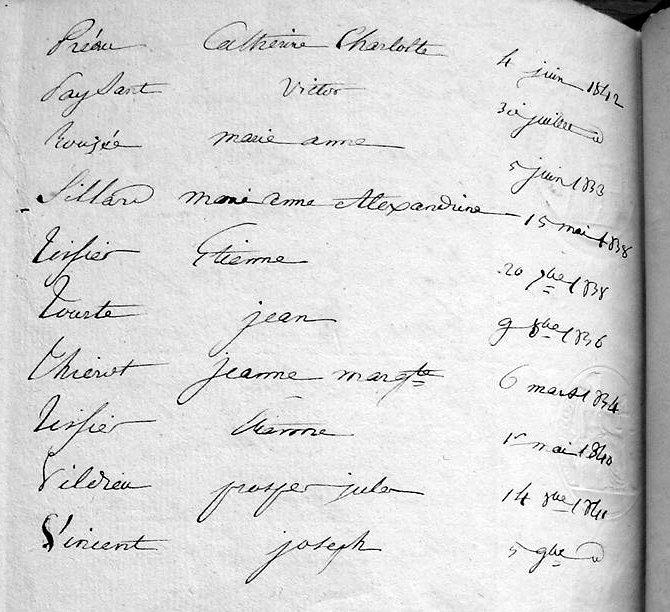 Préau Catherine Charlotte 4 juin 1842
Paysant Victor 30 juillet d
Rousée marie anne 5 juin 1833
Sillard marie anne Alexandrine 15 mai 1838
Tissier Etienne 20 9bre 1838
Tourte jean 9 8bre 1836
Thierot jeanne margte 6 mars 1834
Tissier Etienne 1r mai 1840
Vildieu prosper jules 14 xbre 1841
Vincent joseph 5 9bre d